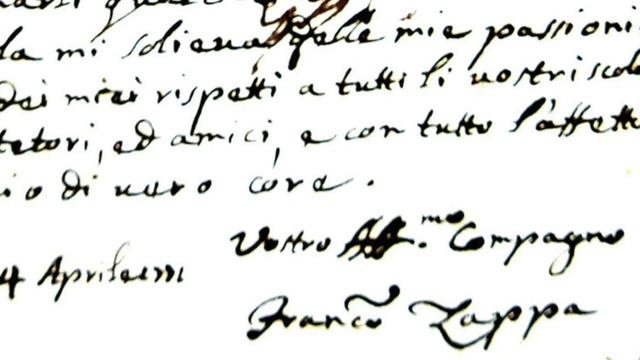 la mi solieua delle mie passioni
dei miei rispetti a tutti li vostri scol
tetori, ed amici, e con tutto l'affetto
io di vero core.
Vostro Aff.mo Compagno
4 Aprile
Franco Zappa